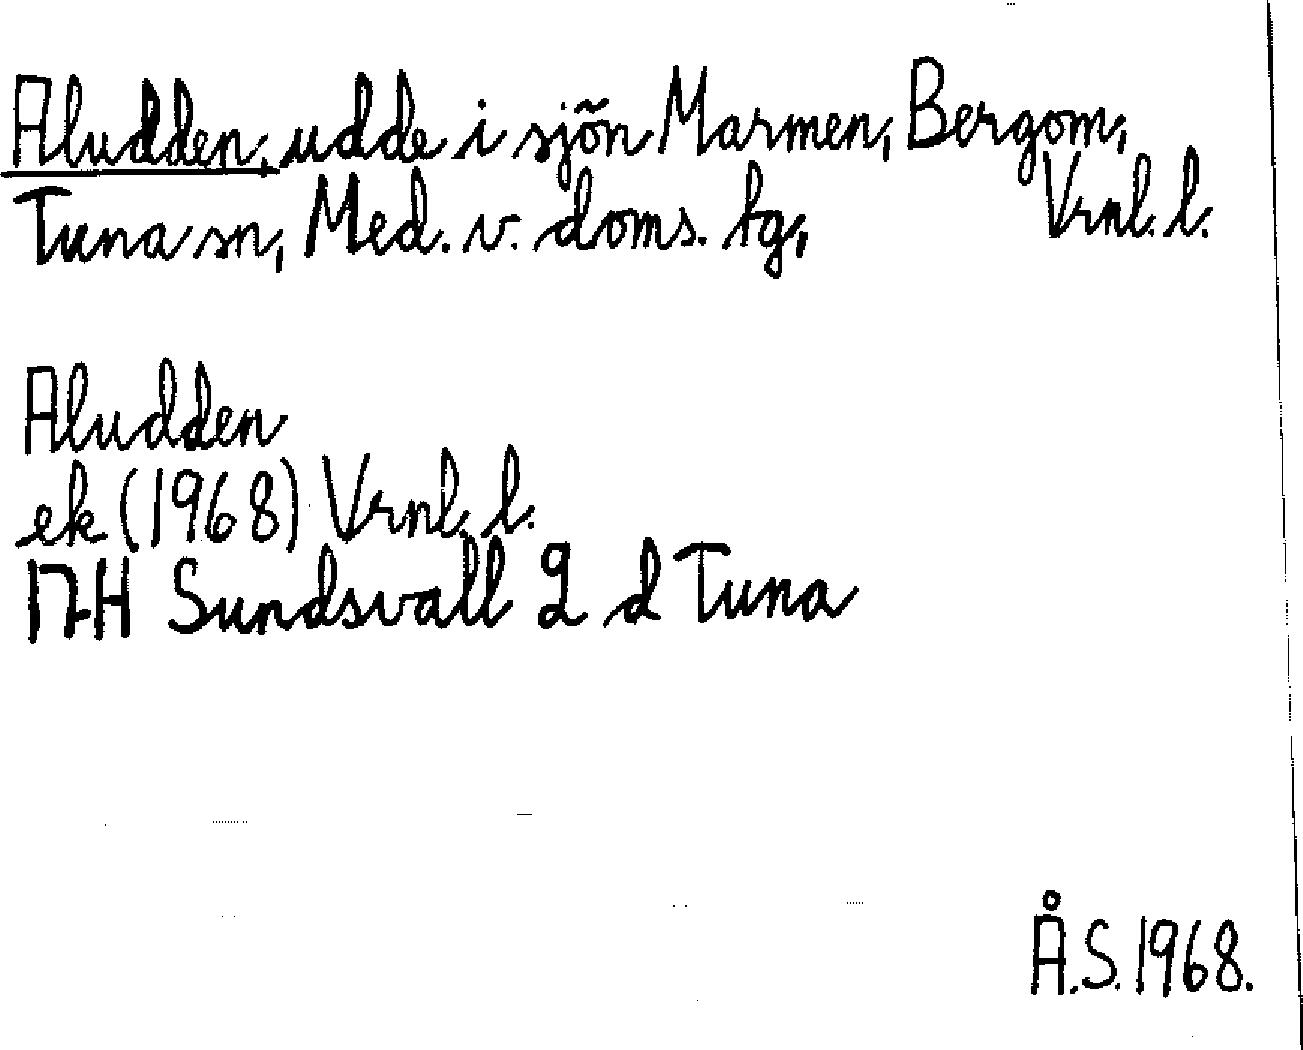 Aludden, udde i sjön Marmen, Bergom,
Tuna sn, Med. v. doms. tg, Vrnl. l.
Aludden
ek (1968) Vrnl. l.
17H Sundsvall 2 d Tuna
Å.S. 1968.